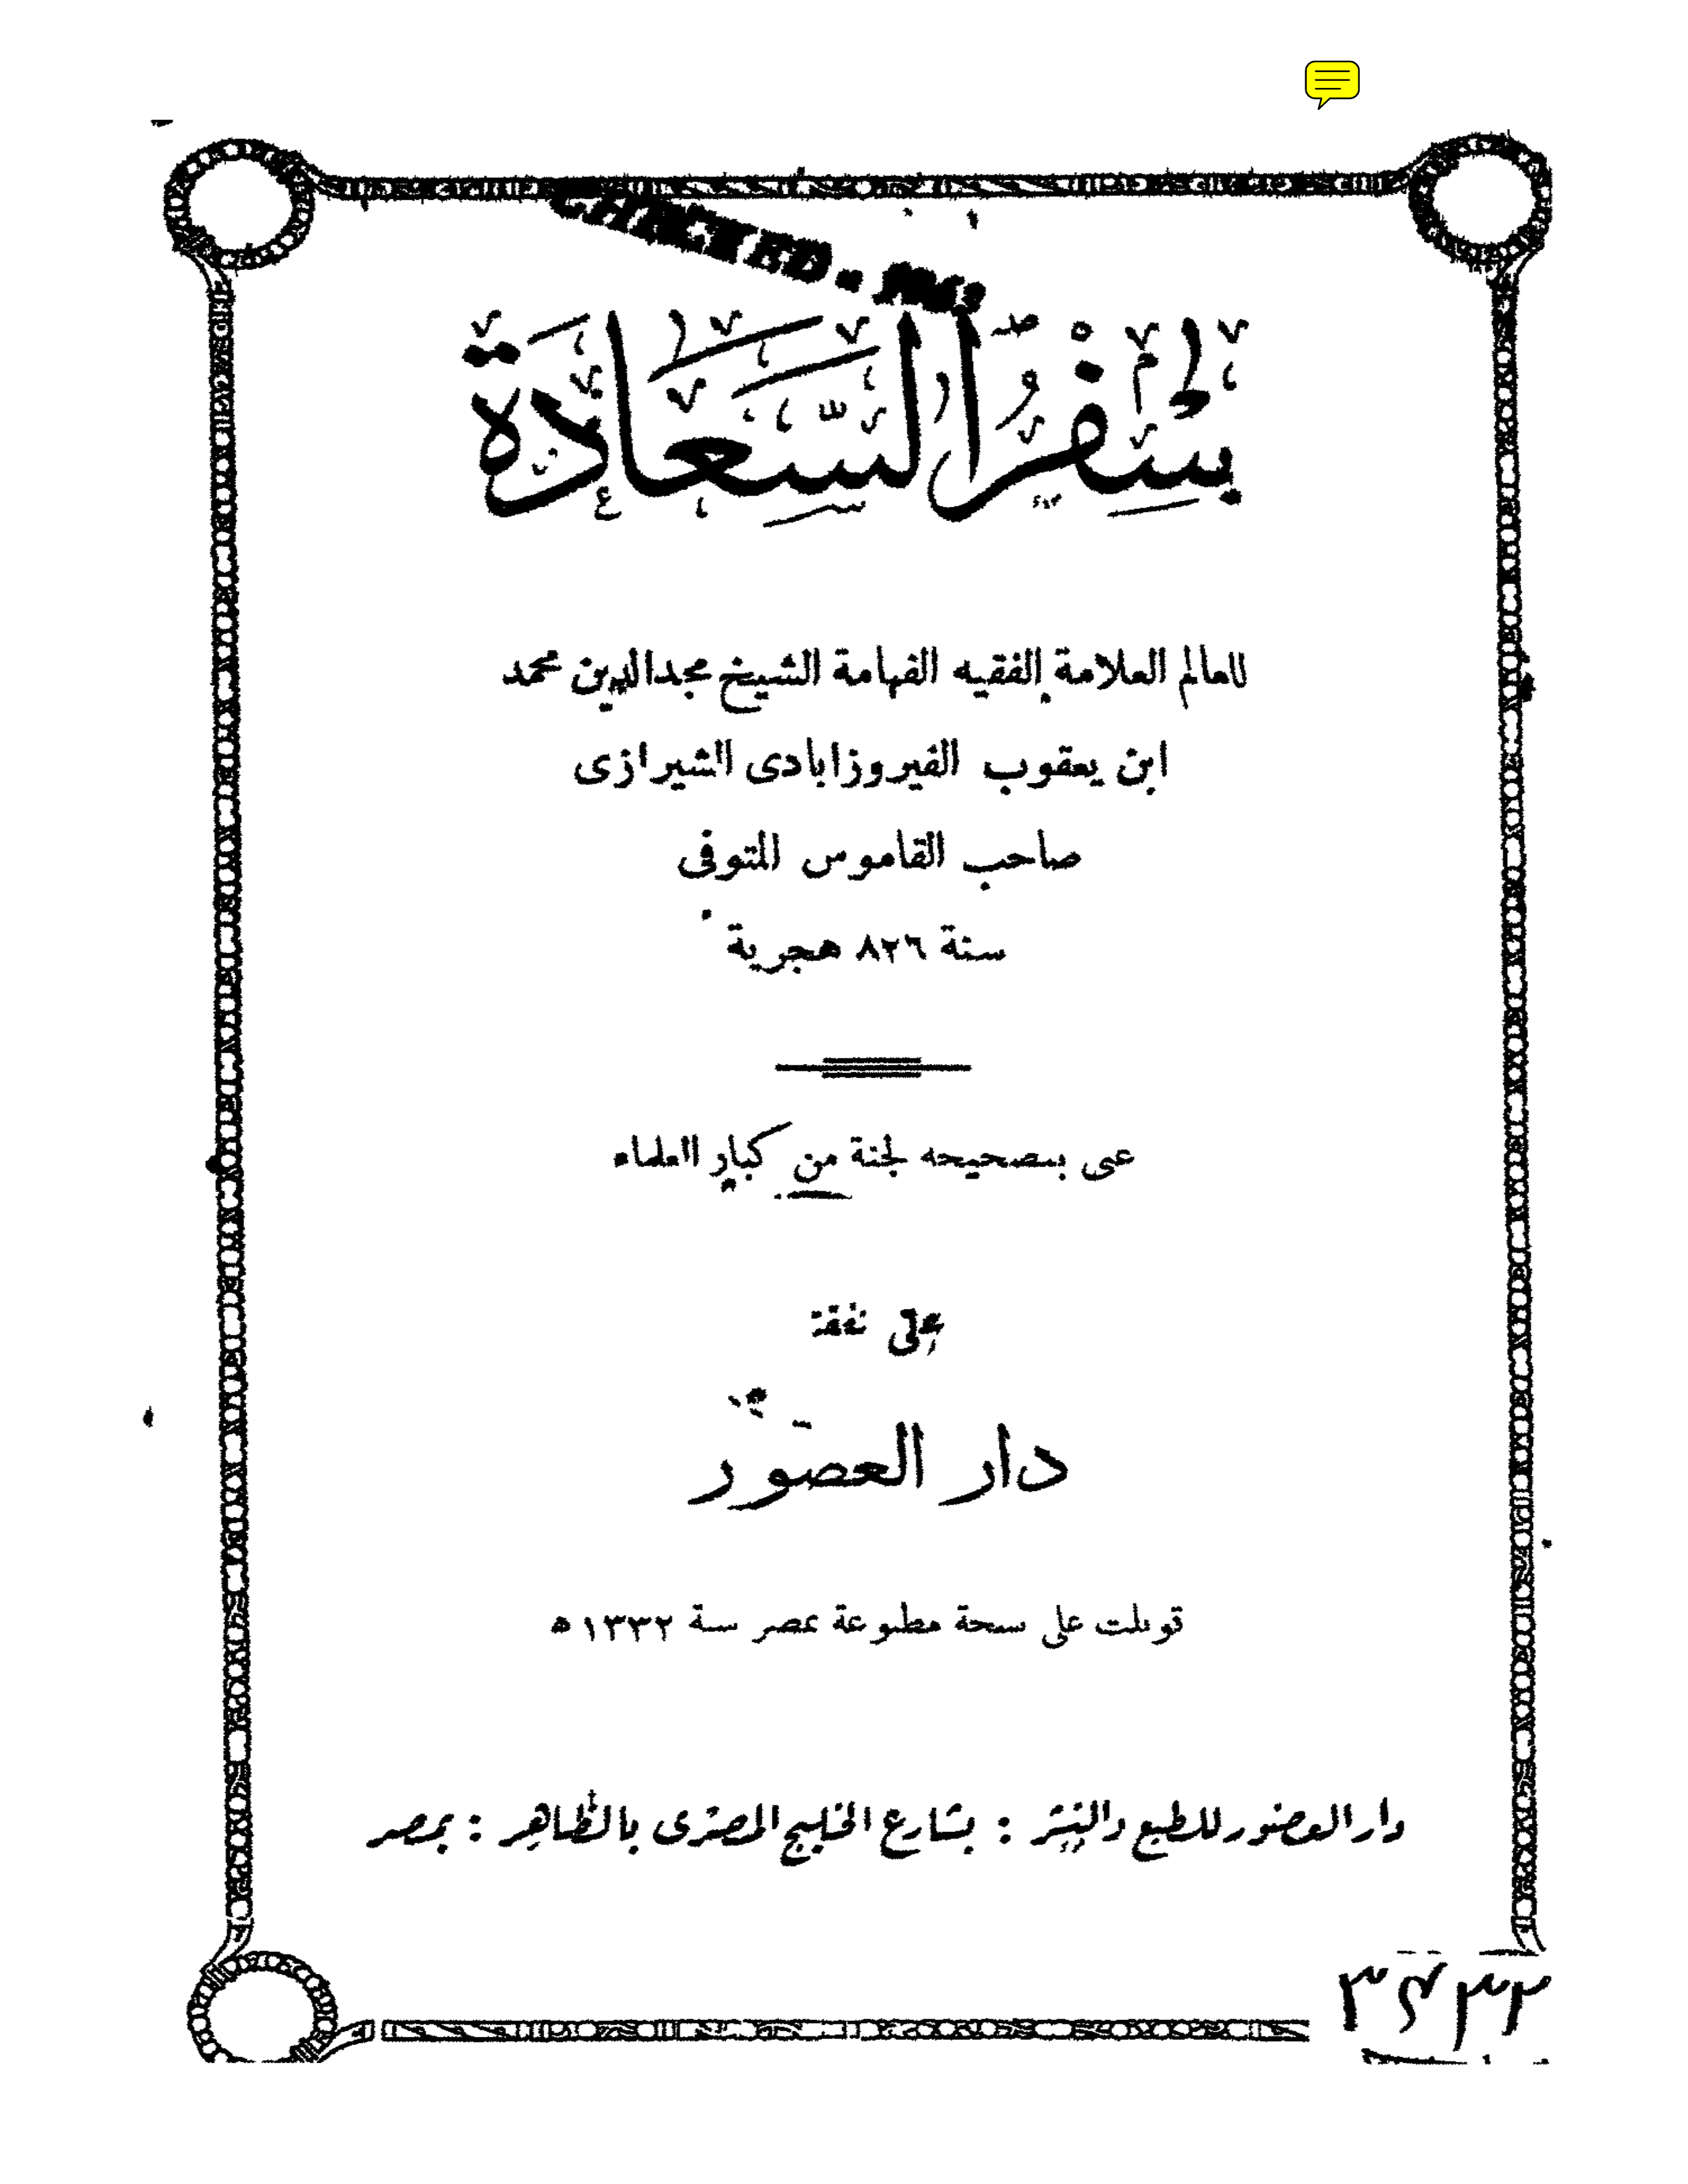 سِفْرُ السَّعَادَة
للعالم العلامة الفقيه الفهامة الشيخ مجدالدين محمد
ابن يعقوب الفيروزابادى الشيرازى
صاحب القاموس المتوفى
سنة ٨٢٦ هجرية
عنى بتصحيحه لجنة من كبار العلماء
على نفقة
دار العصور
قوبلت على نسخة مطبوعة بمصر سنة ١٣٣٢ ه
دار العصور للطبع والنشر : بشارع الخليج المصرى بالظاهر : بمصر